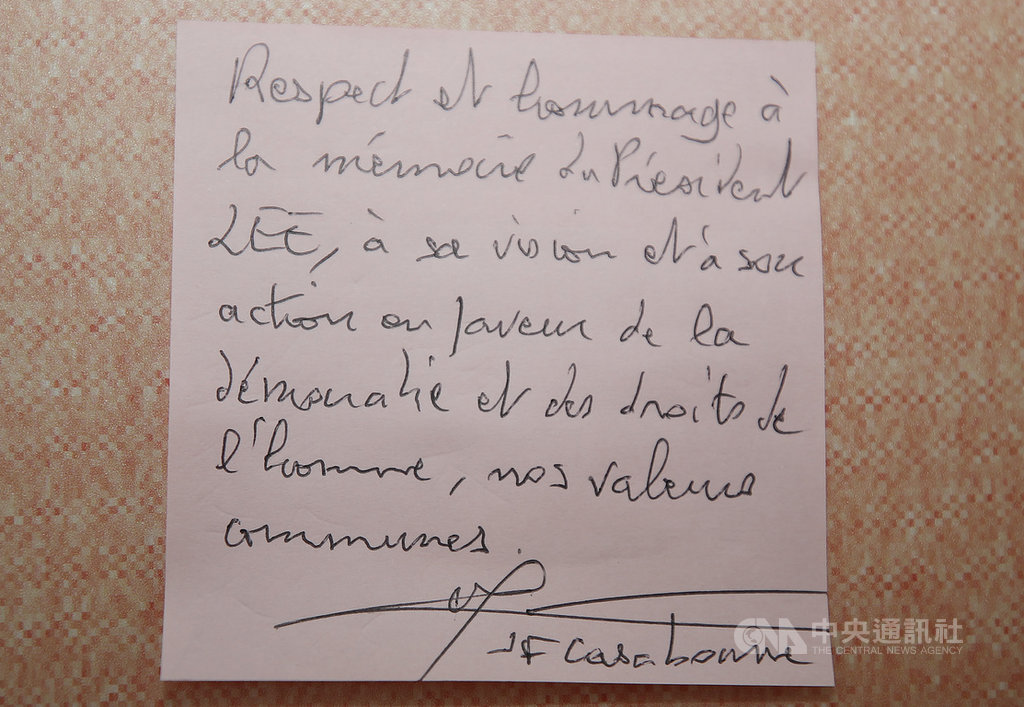 Respect et hommage à
la mémoire du Président
LEE, à sa vision et à son
action en faveur de la
démocratie et des droits de
l'homme, nos valeurs
communes.
JF Casabonne
CNA 中央通訊社
THE CENTRAL NEWS AGENCY